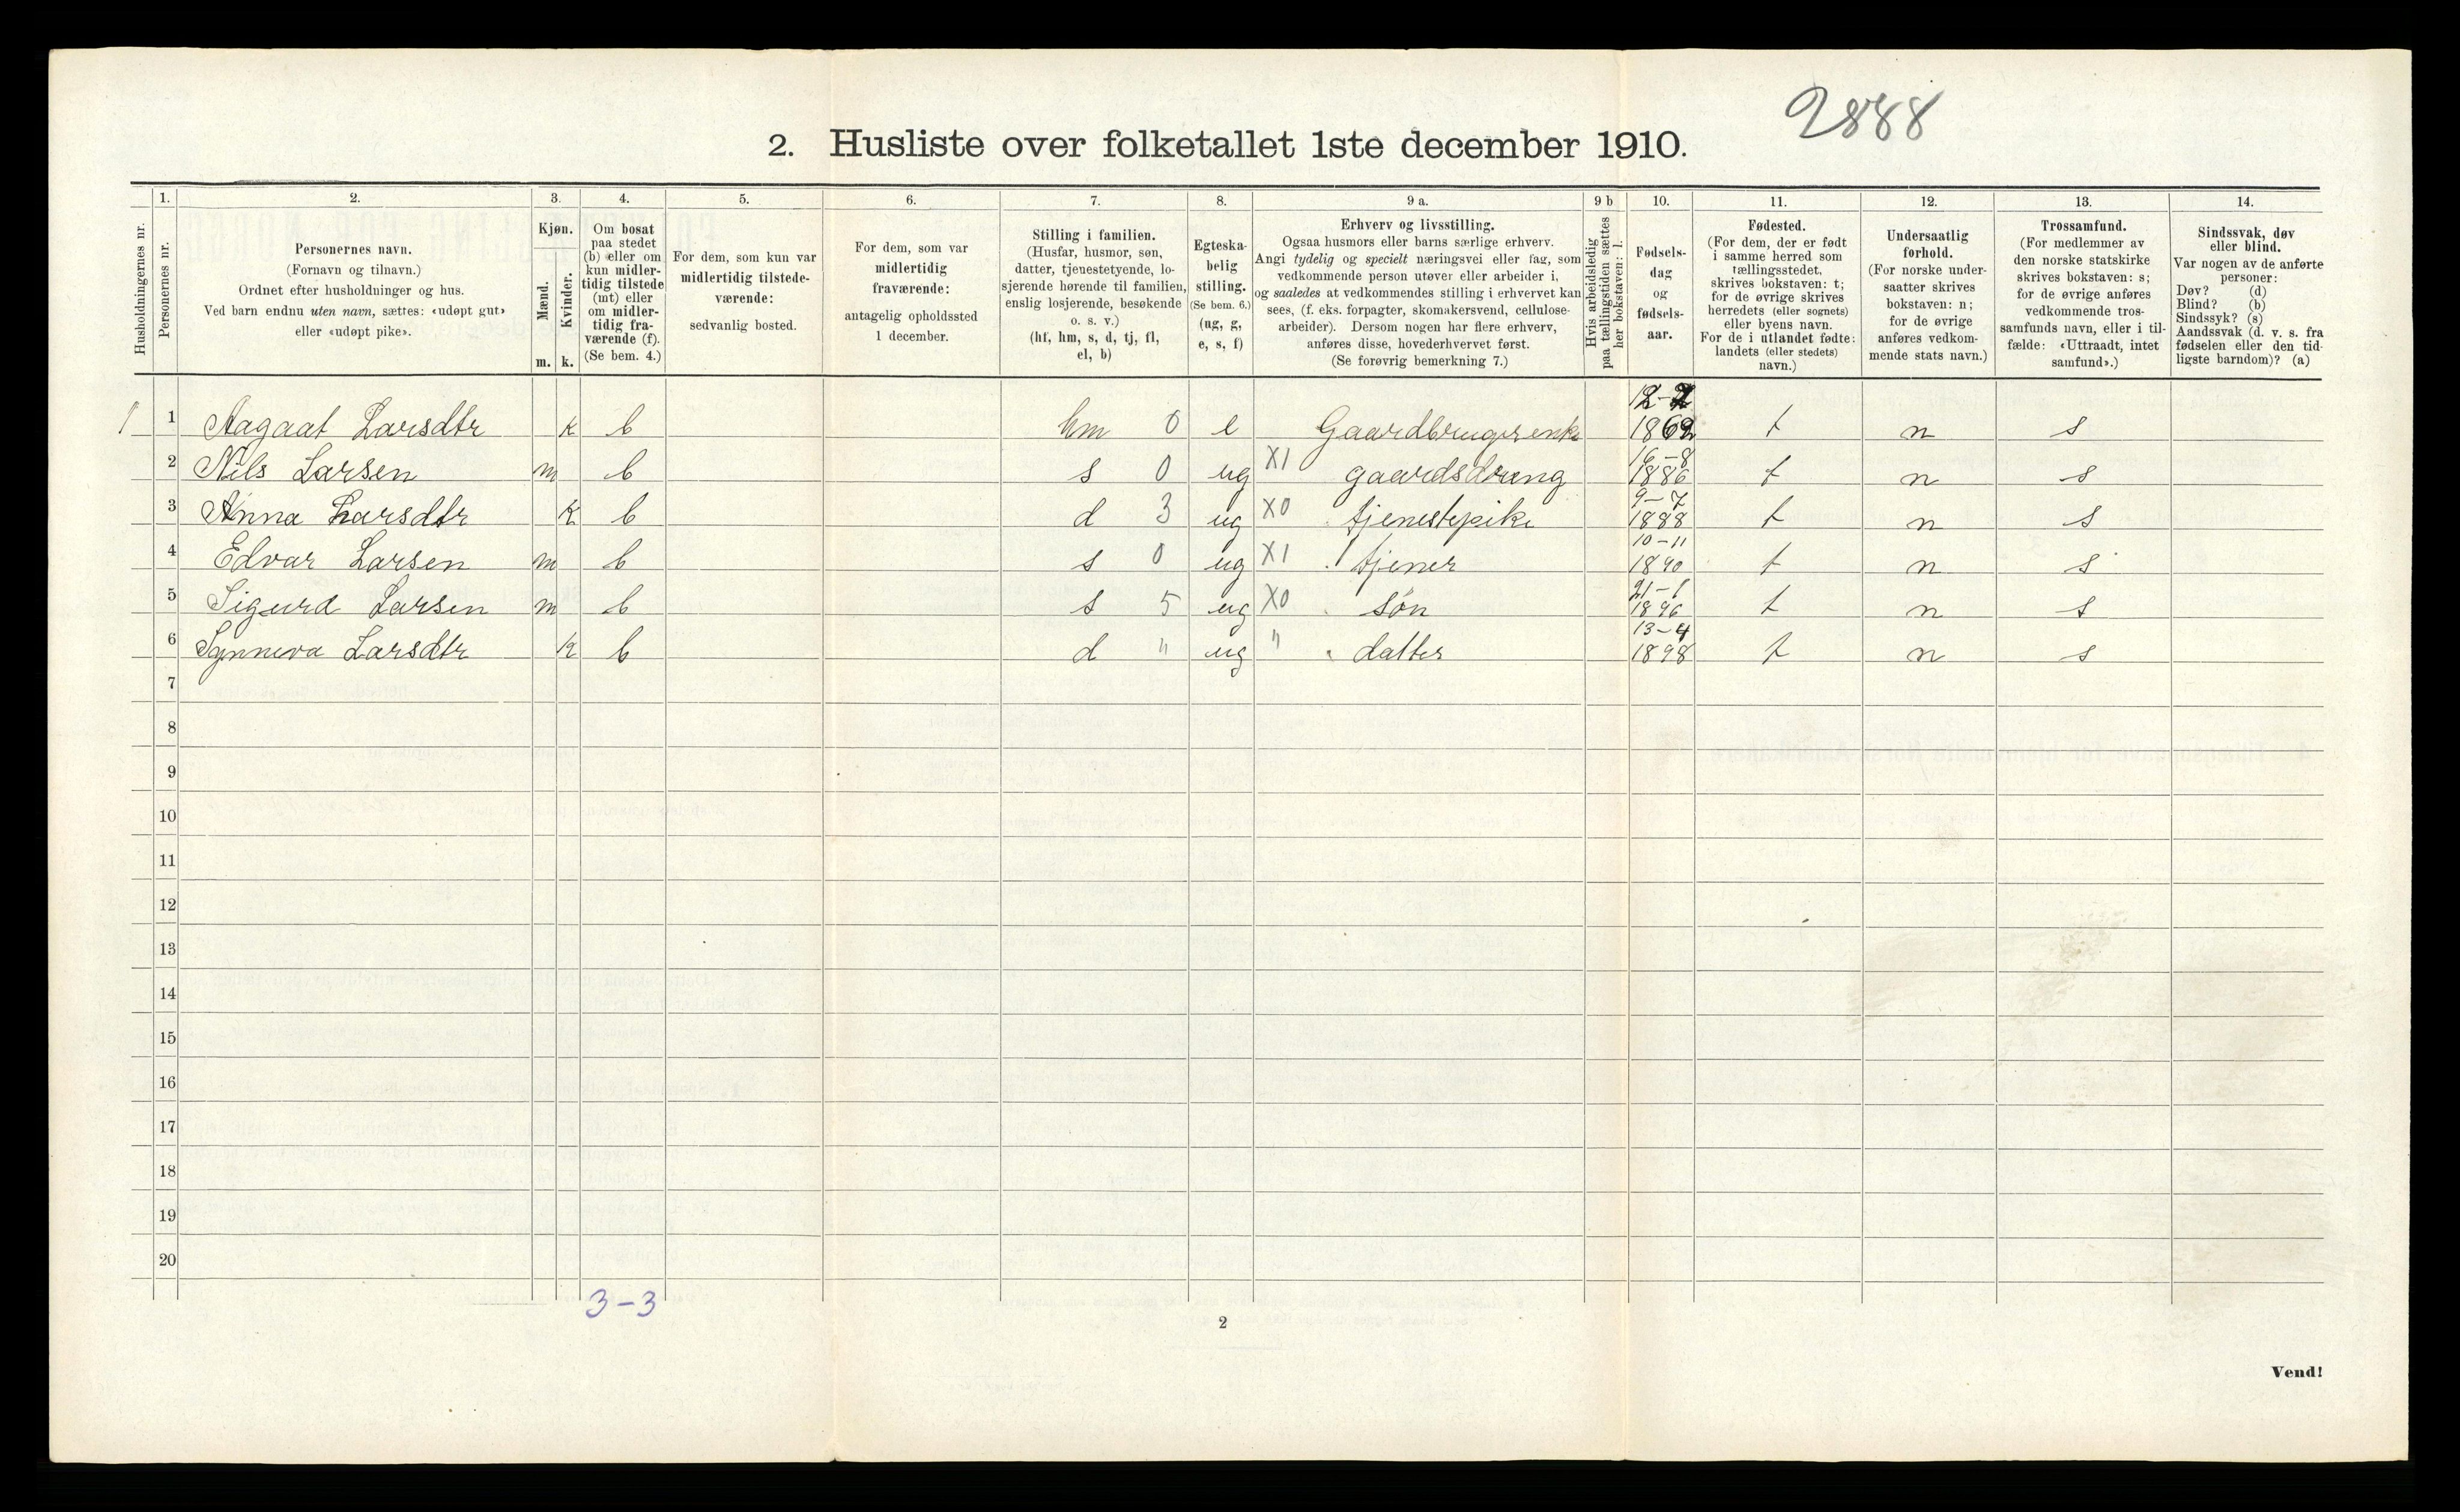 2888
2. Husliste over folketallet 1ste december 1910.
Husholdningernes nr.
1. Personernes nr.
2. Personernes navn.
(Fornavn og tilnavn.)
Ordnet efter husholdninger og hus.
Ved barn endnu uten navn, sættes: «udøpt gut»
eller «udøpt pike».
3. Kjøn.
Mænd. m.
Kvinder. k.
4. Om bosat
paa stedet
(b) eller om
kun midler-
tidig tilstede
(mt) eller
om midler-
tidig fra-
værende (f).
(Se bem. 4.)
5. For dem, som kun var
midlertidig tilstede-
værende:
sedvanlig bosted.
6. For dem, som var
midlertidig
fraværende:
antagelig opholdssted
1 december.
7. Stilling i familien.
(Husfar, husmor, søn,
datter, tjenestetyende, lo-
sjerende hørende til familien,
enslig losjerende, besøkende
o. s. v.)
(hf, hm, s, d, tj, fl,
el, b)
8. Egteska-
belig
stilling.
(Se bem. 6.)
(ug, g,
e, s, f)
9 a. Erhverv og livsstilling.
Ogsaa husmors eller barns særlige erhverv.
Angi tydelig og specielt næringsvei eller fag, som
vedkommende person utøver eller arbeider i,
og saaledes at vedkommendes stilling i erhvervet kan
sees, (f. eks. forpagter, skomakersvend, cellulose-
arbeider). Dersom nogen har flere erhverv,
anføres disse, hovederhvervet først.
(Se forøvrig bemerkning 7.)
9 b Hvis arbeidsledig
paa tællingstiden sættes
her bokstaven: l.
10. Fødsels-
dag
og
fødsels-
aar.
11. Fødested.
(For dem, der er født
i samme herred som
tællingsstedet,
skrives bokstaven: t;
for de øvrige skrives
herredets (eller sognets)
eller byens navn.
For de i utlandet fødte:
landets (eller stedets)
navn.)
12. Undersaatlig
forhold.
(For norske under-
saatter skrives
bokstaven: n;
for de øvrige
anføres vedkom-
mende stats navn.)
13. Trossamfund.
(For medlemmer av
den norske statskirke
skrives bokstaven: s;
for de øvrige anføres
vedkommende tros-
samfunds navn, eller i til-
fælde: «Uttraadt, intet
samfund».)
14. Sindssvak, døv
eller blind.
Var nogen av de anførte
personer:
Døv? (d)
Blind? (b)
Sindssyk? (s)
Aandssvak (d. v. s. fra
fødselen eller den tid-
ligste barndom)? (a)
1 1 Aagaat Larsdtr k b hm 0 e Gaardbrugerenke 1862 t n s
2 Nils Larsen m b s 0 ug X1 gaardsdreng 16-8 1886 t n s
3 Anna Larsdtr k b d 3 ug X0 tjenestepike 9-7 1888 t n s
4 Edvar Larsen m b s 0 ug X1 tjener 10-11 1890 t n s
5 Sigurd Larsen m b s 5 ug X0 søn 21-1 1896 t n s
6 Synneva Larsdtr k b d " ug " datter 13-4 1898 t n s
7
8
9
10
11
12
13
14
15
16
17
18
19
20
3-3
2
Vend!